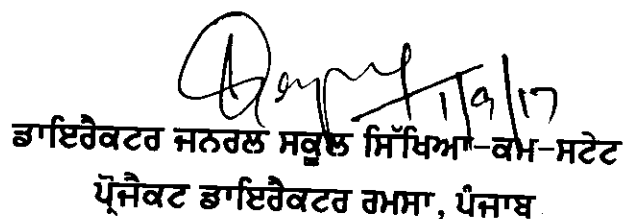 1/9/17
ਡਾਇਰੈਕਟਰ ਜਨਰਲ ਸਕੂਲ ਸਿੱਖਿਆ-ਕਮ-ਸਟੇਟ
ਪ੍ਰੋਜੈਕਟ ਡਾਇਰੈਕਟਰ ਰਮਸਾ, ਪੰਜਾਬ